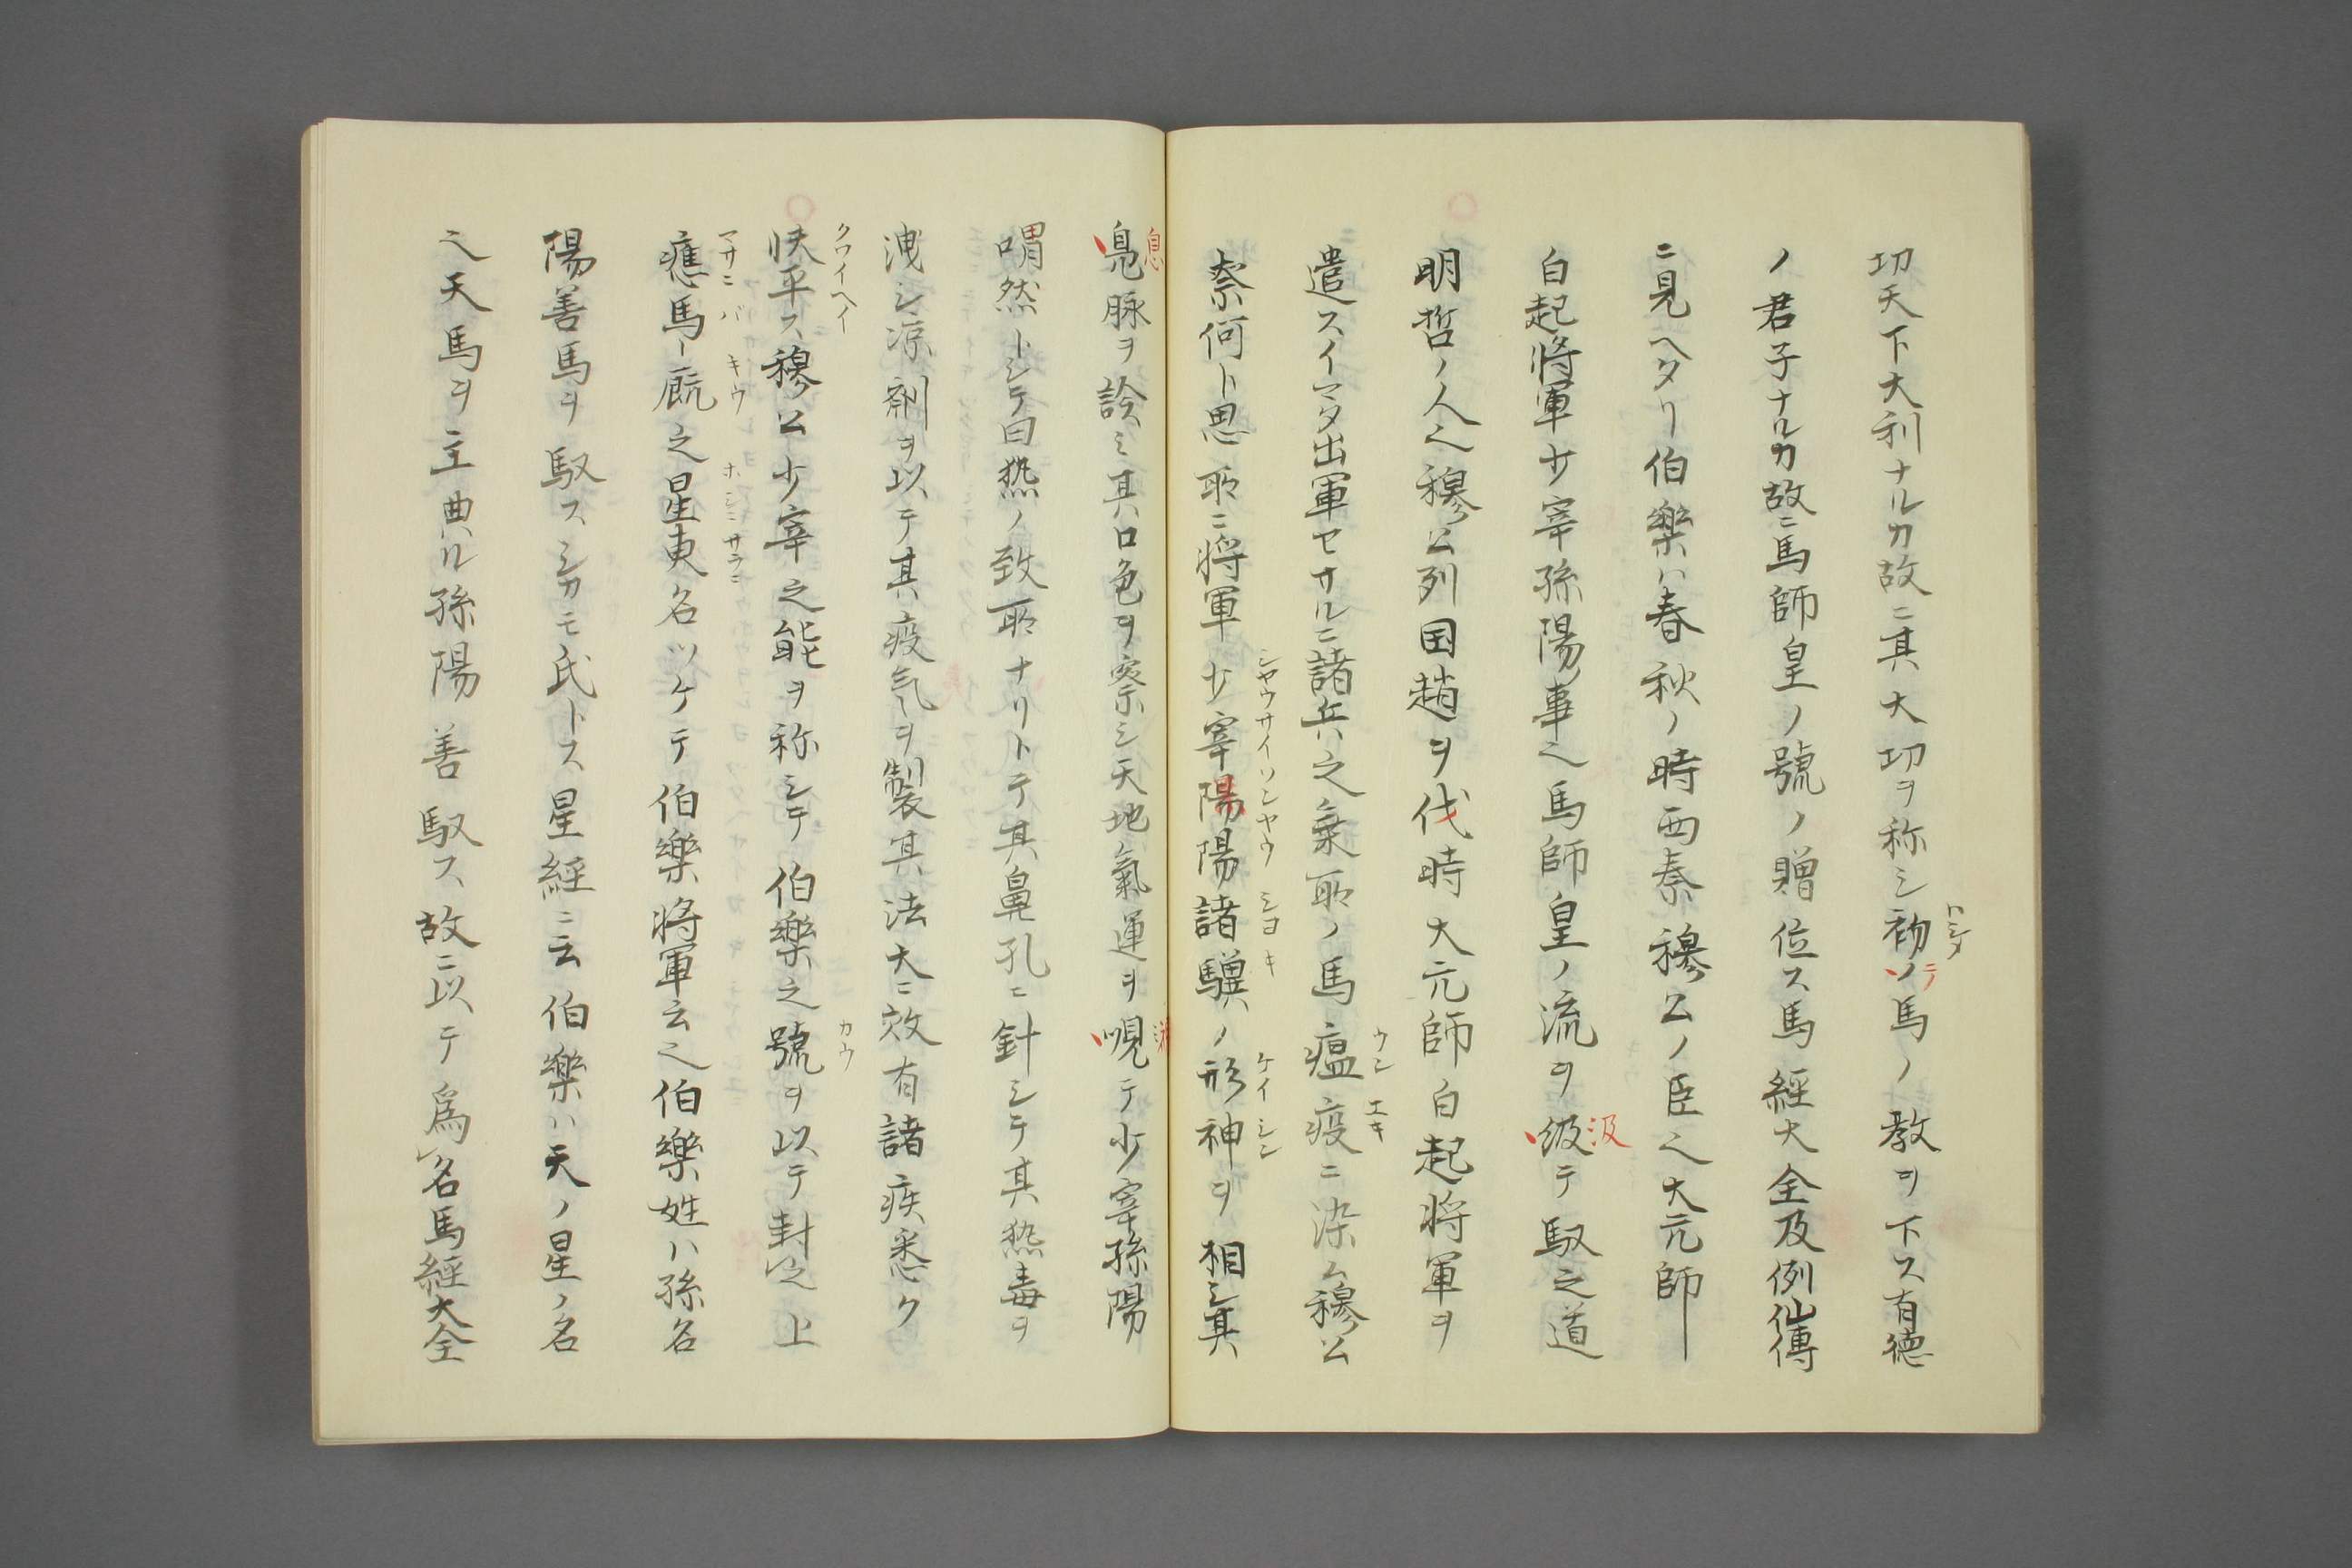 切天下大利ナルカ故ニ其大切ヲ称シ初ソ馬ノ教ヲ下ス有徳
ハシメ
テ
ノ君子ナルカ故ニ馬師皇ノ號ノ贈位ス馬經大全及例仙傳
ニ見ヘタリ伯樂ハ春秋ノ時西秦穆公ノ臣也大元師
白起將軍少宰孫陽事也馬師皇ノ流ヲ級テ馭之道
汲
明哲ノ人也穆公列国趙ヲ伐時大元師白起将軍ヲ
遣スイマタ出軍セサルニ諸兵之乗所ノ馬瘟疫ニ染ム穆公
ウンエキ
奈何ト思所ニ将軍少宰陽陽諸驥ノ形神ヲ相シ其
シヤウサイソンヤウ ショキ ケイシン
鳬脉ヲ診ミ其口色ヲ察シ天地氣運ヲ哯テ少宰孫陽
息
喟然トシテ曰熱ノ致所ナリトテ其鼻孔ニ針シテ其熱毒ヲ
洩シ涼剤ヲ以テ其疫気ヲ製其法大ニ效有諸疾悉ク
快平ス穆公少宰之能ヲ称シテ伯樂之號ヲ以テ封之上
クワイヘイ カウ
應馬一廐之星東名ツケテ伯樂將軍云也伯樂姓ハ孫名
マサニ バ キウ ホシニ サラニ
陽善馬ヲ馭スシカモ氏トス星經ニ云伯樂ハ天ノ星ノ名
也天馬ヲ主典ル孫陽善馭ス故ニ以テ爲レ名馬經大全